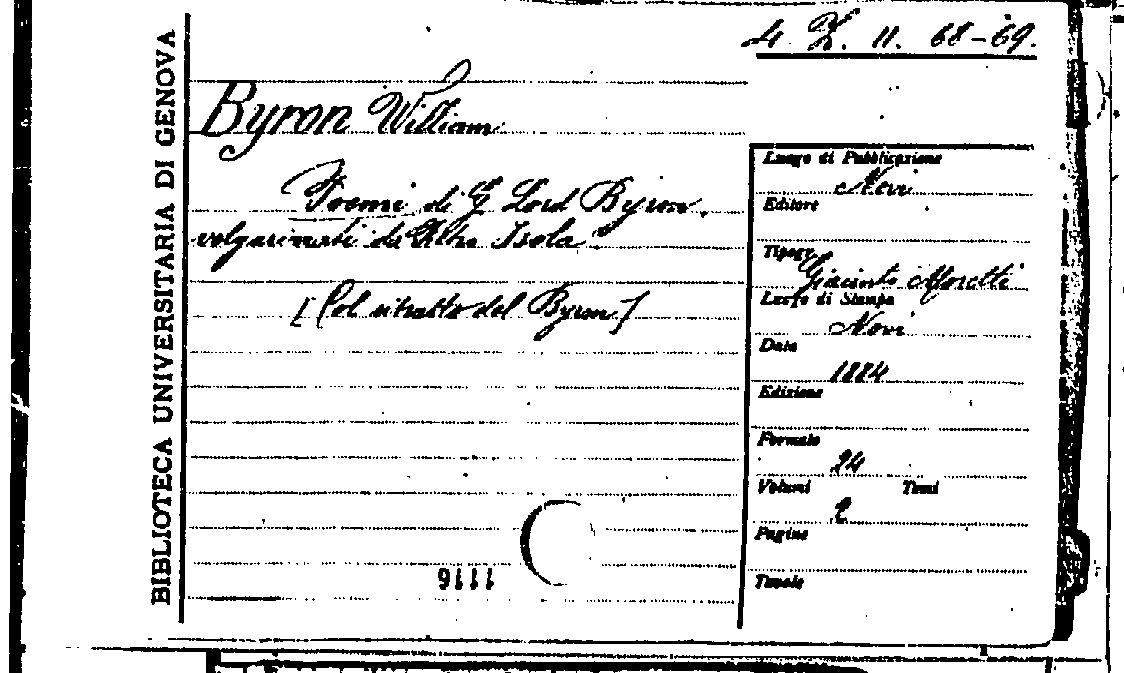 BIBLIOTECA UNIVERSITARIA DI GENOVA
4. Z. 11. 68-69.
Byron William
Poemi di G. Lord Byron,
volgarizzati da Isola
[Col ritratto del Byron]
Luogo di Pubblicazione
Novi
Editore
Tipogr.
Giacinto Moretti
Luogo di Stampa
Novi
Data
1884
Edizione
Formato
24
Volumi Tomi
2
Pagine
Tavole
1116